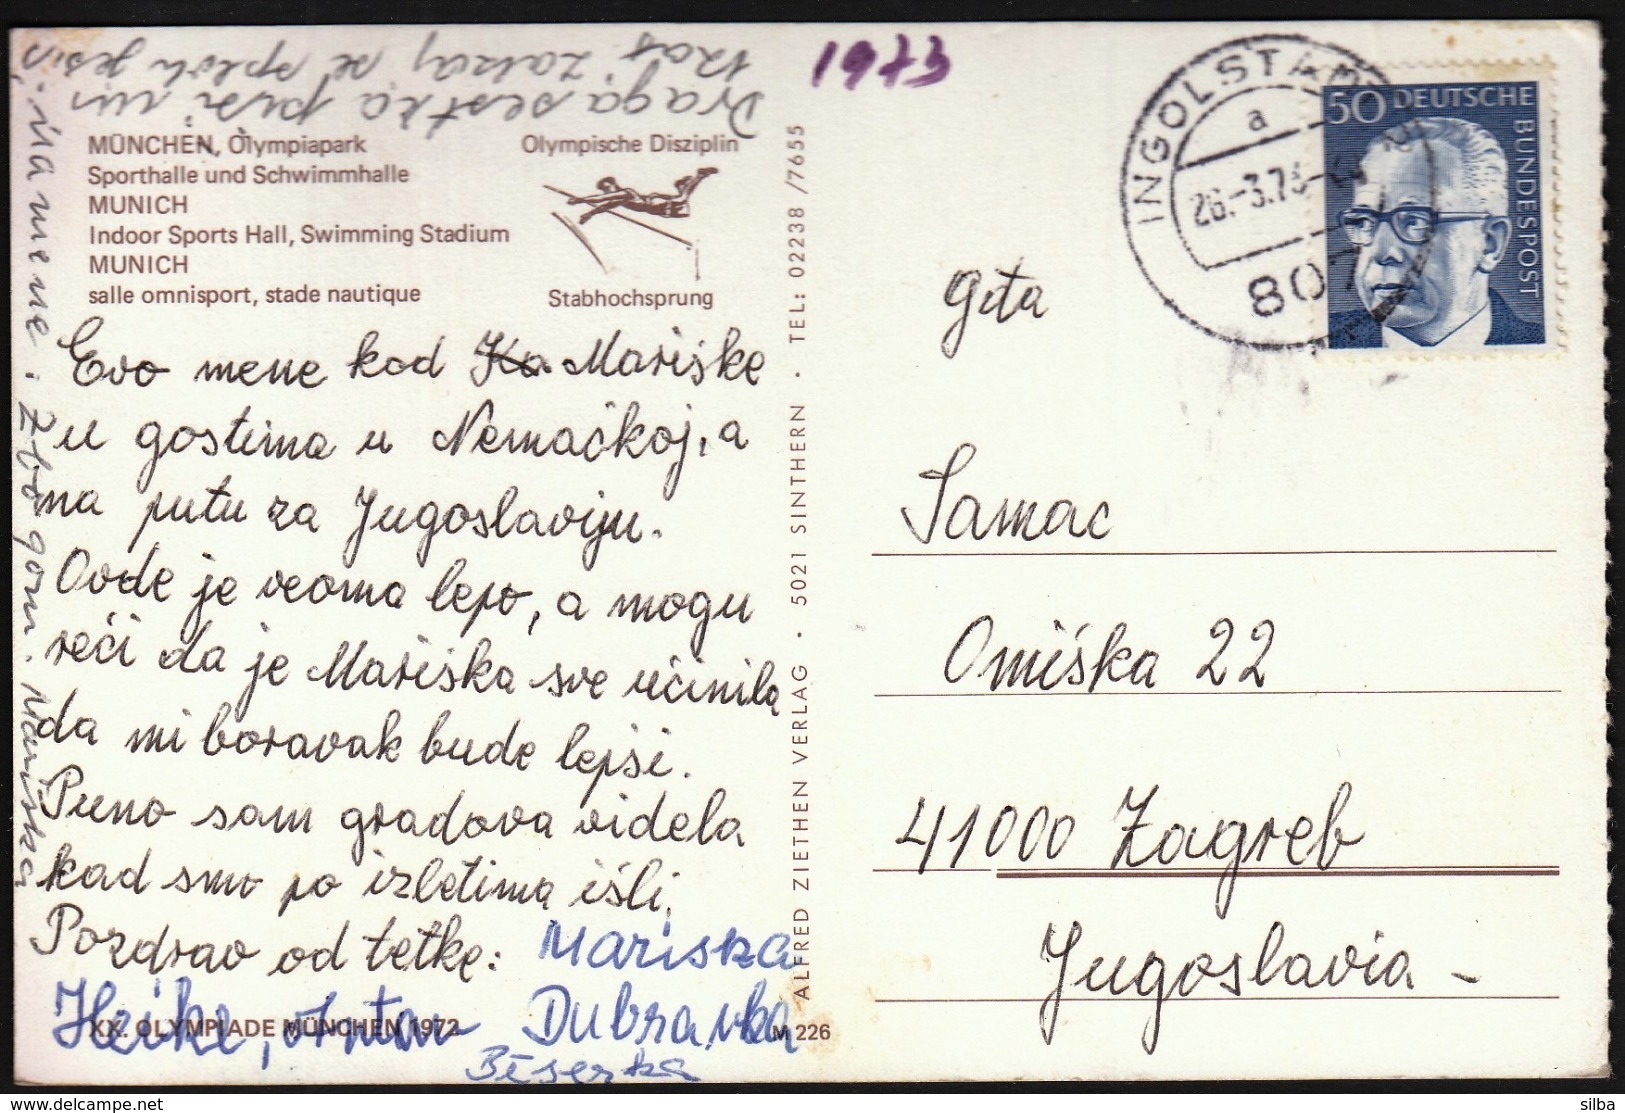 1973
Draga sestra piši mi
kat zakaj se sploh jesi
na mene. Zbogom. Mariska
MÜNCHEN, Olympiapark
Sporthalle und Schwimmhalle
MUNICH
Indoor Sports Hall, Swimming Stadium
MUNICH
salle omnisport, stade nautique
Olympische Disziplin
Stabhochsprung
Evo mene kod Mariške
u gostima u Nemačkoj, a
na putu za Jugoslaviju.
Ovde je veoma lepo, a mogu
reći da je Mariška sve učinila
da mi boravak bude lepši.
Puno sam gradova videla
kad smo po izletima išli.
Pozdrav od tetke: Mariska
Heike, Anton Dubravka
Biserka
XX. OLYMPIADE MÜNCHEN 1972
M 226
ALFRED ZIETHEN VERLAG · 5021 SINTHERN · TEL: 02238/7655
INGOLSTADT 2
a
26.-3.73
807
50 DEUTSCHE
BUNDESPOST
Gita
Samac
Omiška 22
41000 Zagreb
Jugoslavia -
silba